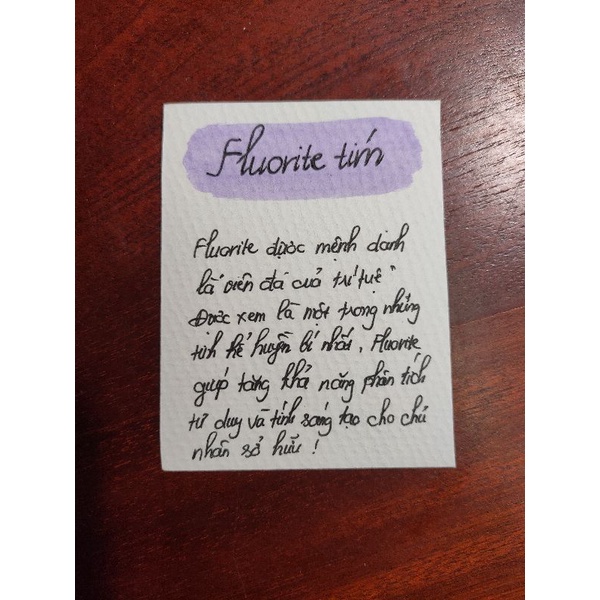 Fluorite tím
Fluorite được mệnh danh
là "viên đá của trí tuệ"
Được xem là một trong những
tinh thể huyền bí nhất, Fluorite
giúp tăng khả năng phân tích
tư duy và tính sáng tạo cho chủ
nhân sở hữu !